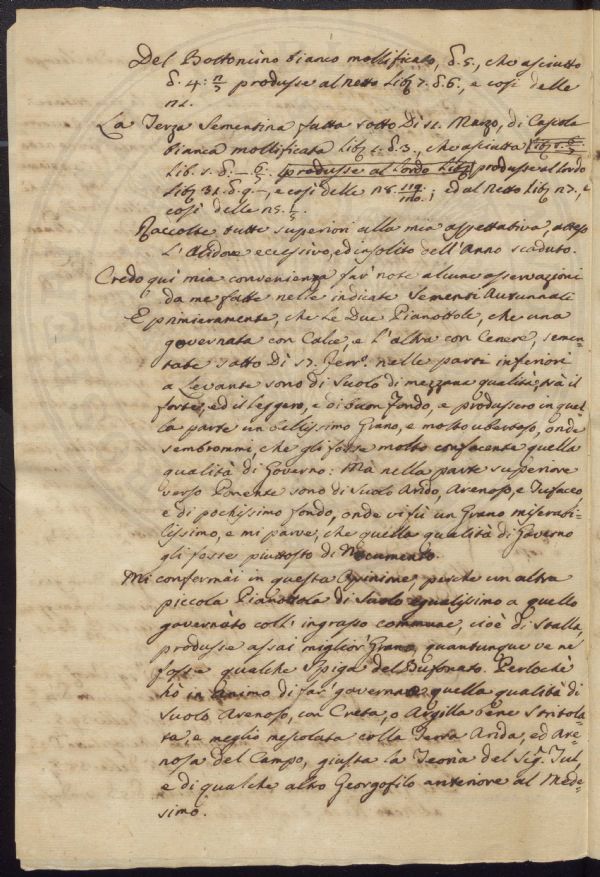 Del Bottoncino bianco mollificato, δ. 5., che asciutto
δ. 4: n/3 produsse al netto Lib. 7. δ. 6., e così delle
n2.
La Terza Sementina fatta sotto Dì 11. Marzo, di Casola
bianca mollificata Lib. 1. δ. 2., che asciutta
Lib. 1. δ. — 6/7. produsse al Lordo Lib. produsse al Lordo
Lib. 31. δ. 9.—, e così delle n8. 119/110.; ed al Netto Lib. n7., e
così delle n5. 1/5.
Raccolte tutte superiori alla mia aspettativa, atteso
l'Alidore eccessivo, ed insolito dell'Anno scaduto.
Credo qui mia convenienza far' note alcune osservazioni
da me fatte nelle indicate Sementi Autunnali
E primieramente, che Le Due Pianottole, che una
governata con Calce, e l'altra con Cenere, semen-
tate sotto Dì 17. Ferro. nelle parti inferiori
a Levante sono di Suolo di mezzana qualità, trà il
forte, ed il leggero, e di buon fondo, e produssero in quel-
la parte un bellissimo Grano, e molto ubertoso, onde
sembrommi, che gli fosse molto confacente quella
qualità di Governo: Mà nella parte superiore
verso Ponente sono di Suolo Arido, Arenoso, e Tufaceo,
e di pochissimo fondo, onde vi fù un Grano miserabi-
lissimo, e mi parve, che quella qualità di Governo
gli fosse piuttosto di Nocumento.
Mi confermài in questa Opinione, perche un altra
piccola Pianottola di Suolo egualissimo a quello
governàto coll' ingrasso commune, cioè di Stalla,
produsse assai miglior' Grano, quantunque ve ne
fosse qualche Spiga del Bufonato. Perlochè
hò in animo di far' governare quella qualità di
Suolo Arenoso, con Creta, o Argilla bene stritola-
ta, e meglio mescolata colla Terra Arida, ed Are-
nosa del Campo, giusta la Teorìa del Sig. Tul,
e di qualche altro Georgofilo anteriore al Mede-
simo.